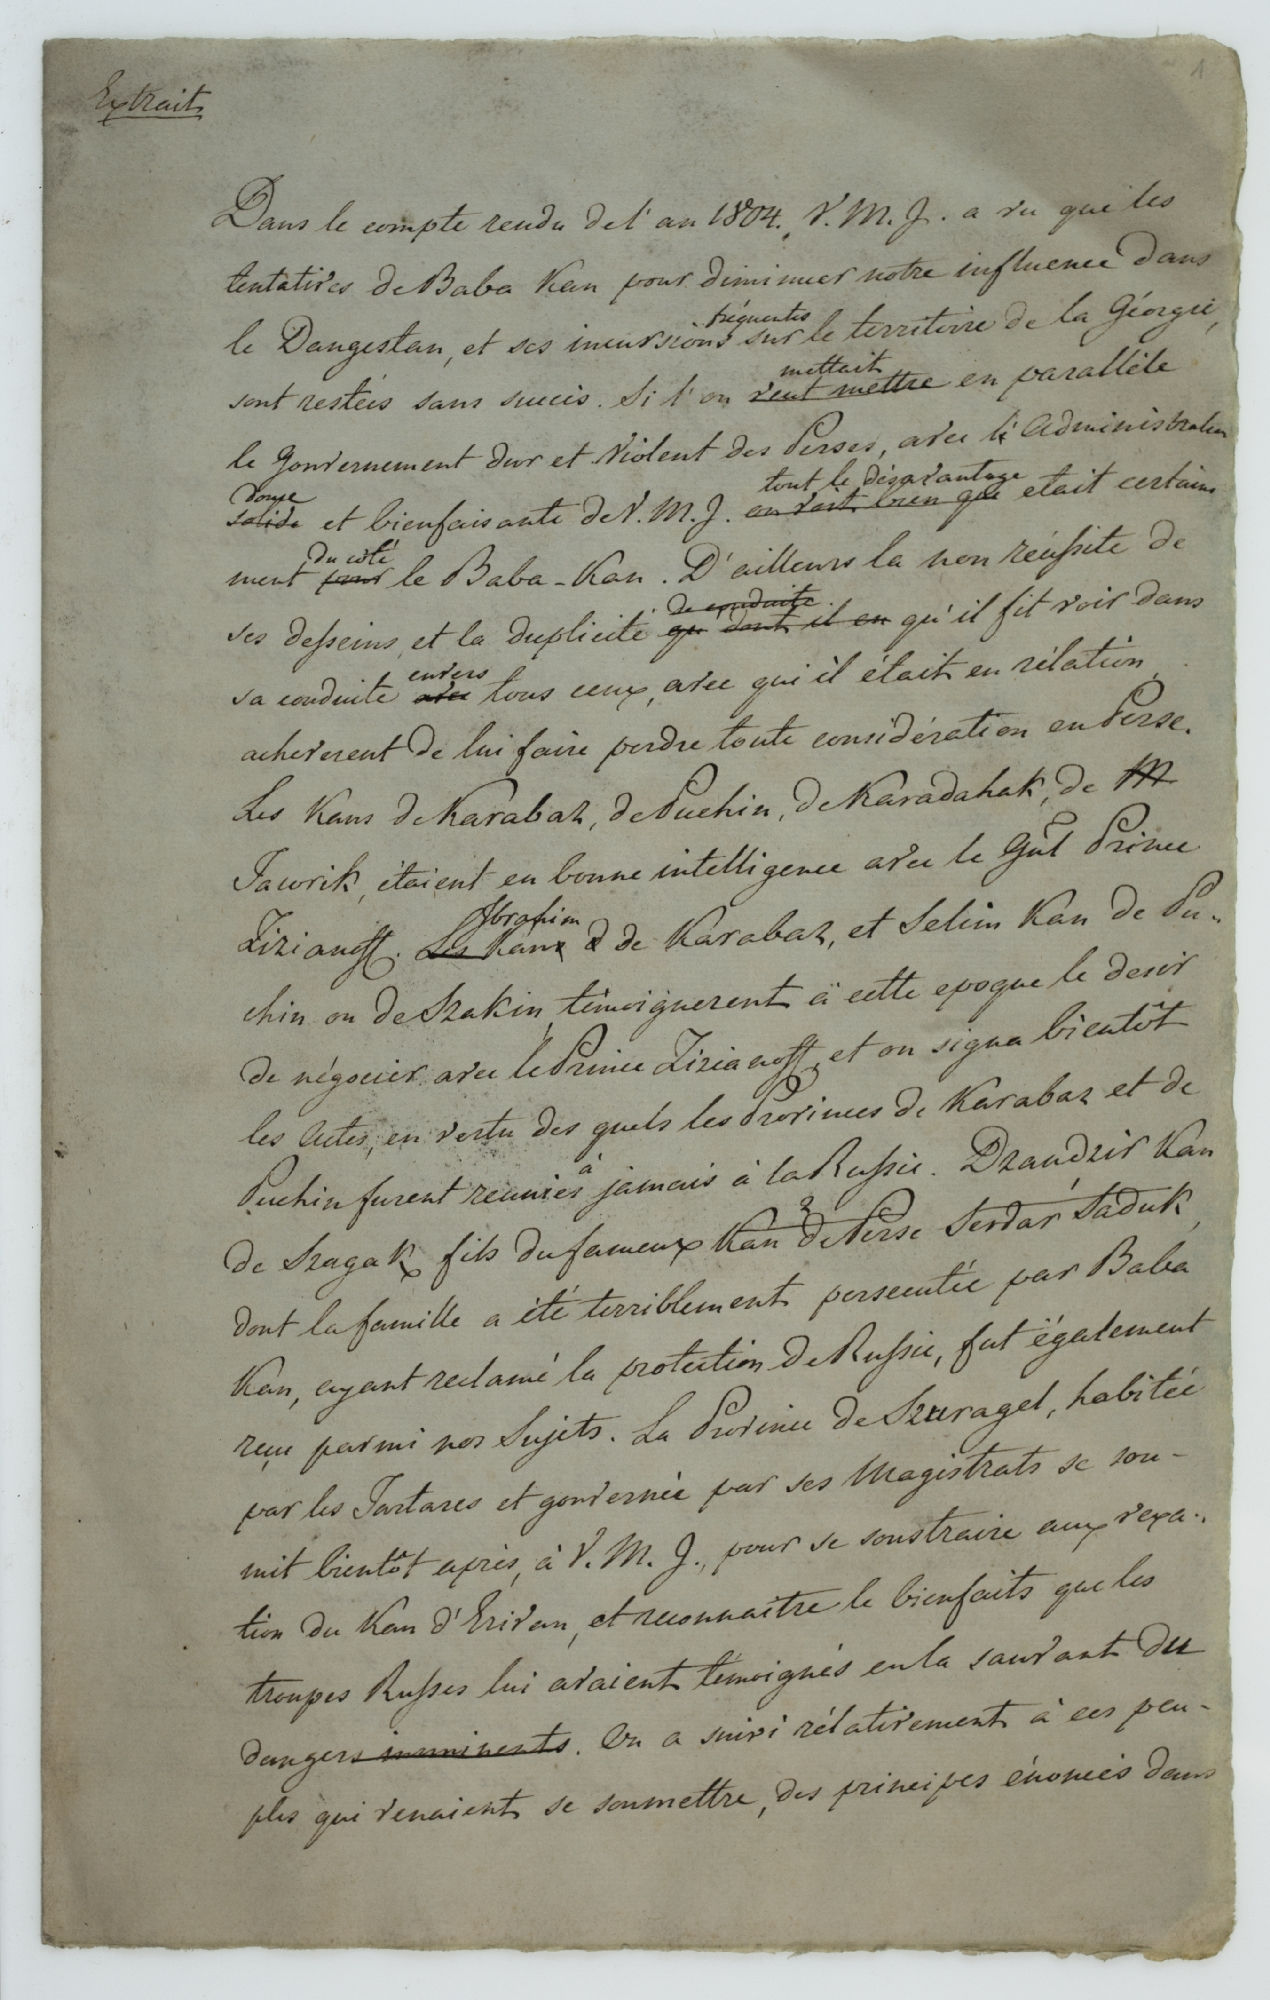 1
Extrait
Dans le compte rendu de l'an 1804. V. M. J. a vu que les
tentatives de Baba Kan pour diminuer notre influence dans
fréquentes
le Dangestan, et ses incursions sur le territoire de la Géorgie,
mettait
sont restées sans succès. Si l'on veut mettre en parallèle
le Gouvernement dur et violent des Perses, avec l'Administration
douce tout le désavantage
solide et bienfaisante de V. M. J. on voit bien que etait certaine-
du côté
ment pour le Baba-Kan. D'ailleurs la non réussite de
de conduite
ses desseins, et la duplicité qu' dont il en qu'il fit voir dans
envers
sa conduite avec tous ceux, avec qui il était en rélation,
acheverent de lui faire perdre toute considération en Perse.
Les Kans de Karabaz, de Puchin, de Karadahak, de M
Tawrik, étaient en bonne intelligence avec le Gnl Prince
Ibrahim
Zizianoff. Les Kans d de Karabaz, et Selim Kan de Pu-
chin ou de Szakin, témoignerent à cette epoque le desir
de négocier avec le Prince Zizianoff, et on signa bientôt
les Actes, en vertu des quels les Provinces de Karabaz et de
à
Puchin furent reunies jamais à la Russie. Dzandzir Kan
2
de Szagak, fils du fameux Kan de Perse Serdar Saduk,
dont la famille a été terriblement persecutée par Baba
Kan, ayant reclamé la protection de Russie, fut également
reçu parmi nos Sujets. La Province de Szuragel, habitée
par les Tartares et gouvernée par ses Magistrats se sou-
mit bientôt après, à V. M. J., pour se soustraire aux vexa-
tion du Kan d'Erivan, et reconnaitre le bienfaits que les
troupes Russes lui avaient témoignés en la sauvant du
dangers imminents. On a suivi rélativement à ces peu-
ples qui venaient se soumettre, des principes énoncés dans